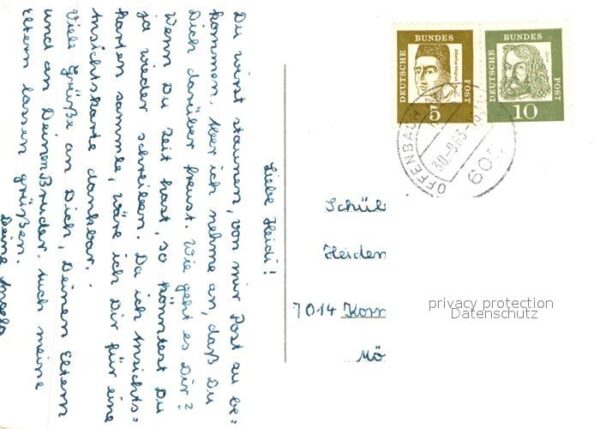 Liebe Heidi!
Du wirst staunen, von mir Post zu be-
kommen. Aber ich nehme an, daß Du
Dich darüber freust. Wie geht es Dir?
Wenn Du Zeit hast, so könntest Du
ja wieder schreiben. Da ich Ansichts=
karten sammle, wäre ich Dir für eine
Ansichtskarte dankbar.
Viele Grüße an Dich, Deinen Eltern
und an Deinen Bruder. Auch meine
Eltern lassen grüßen.
Deine Angela
DEUTSCHE BUNDES POST
5
DEUTSCHE BUNDES POST
10
OFFENBACH
605
Schül
Heiden
7014 Korn
Mö
privacy protection
Datenschutz